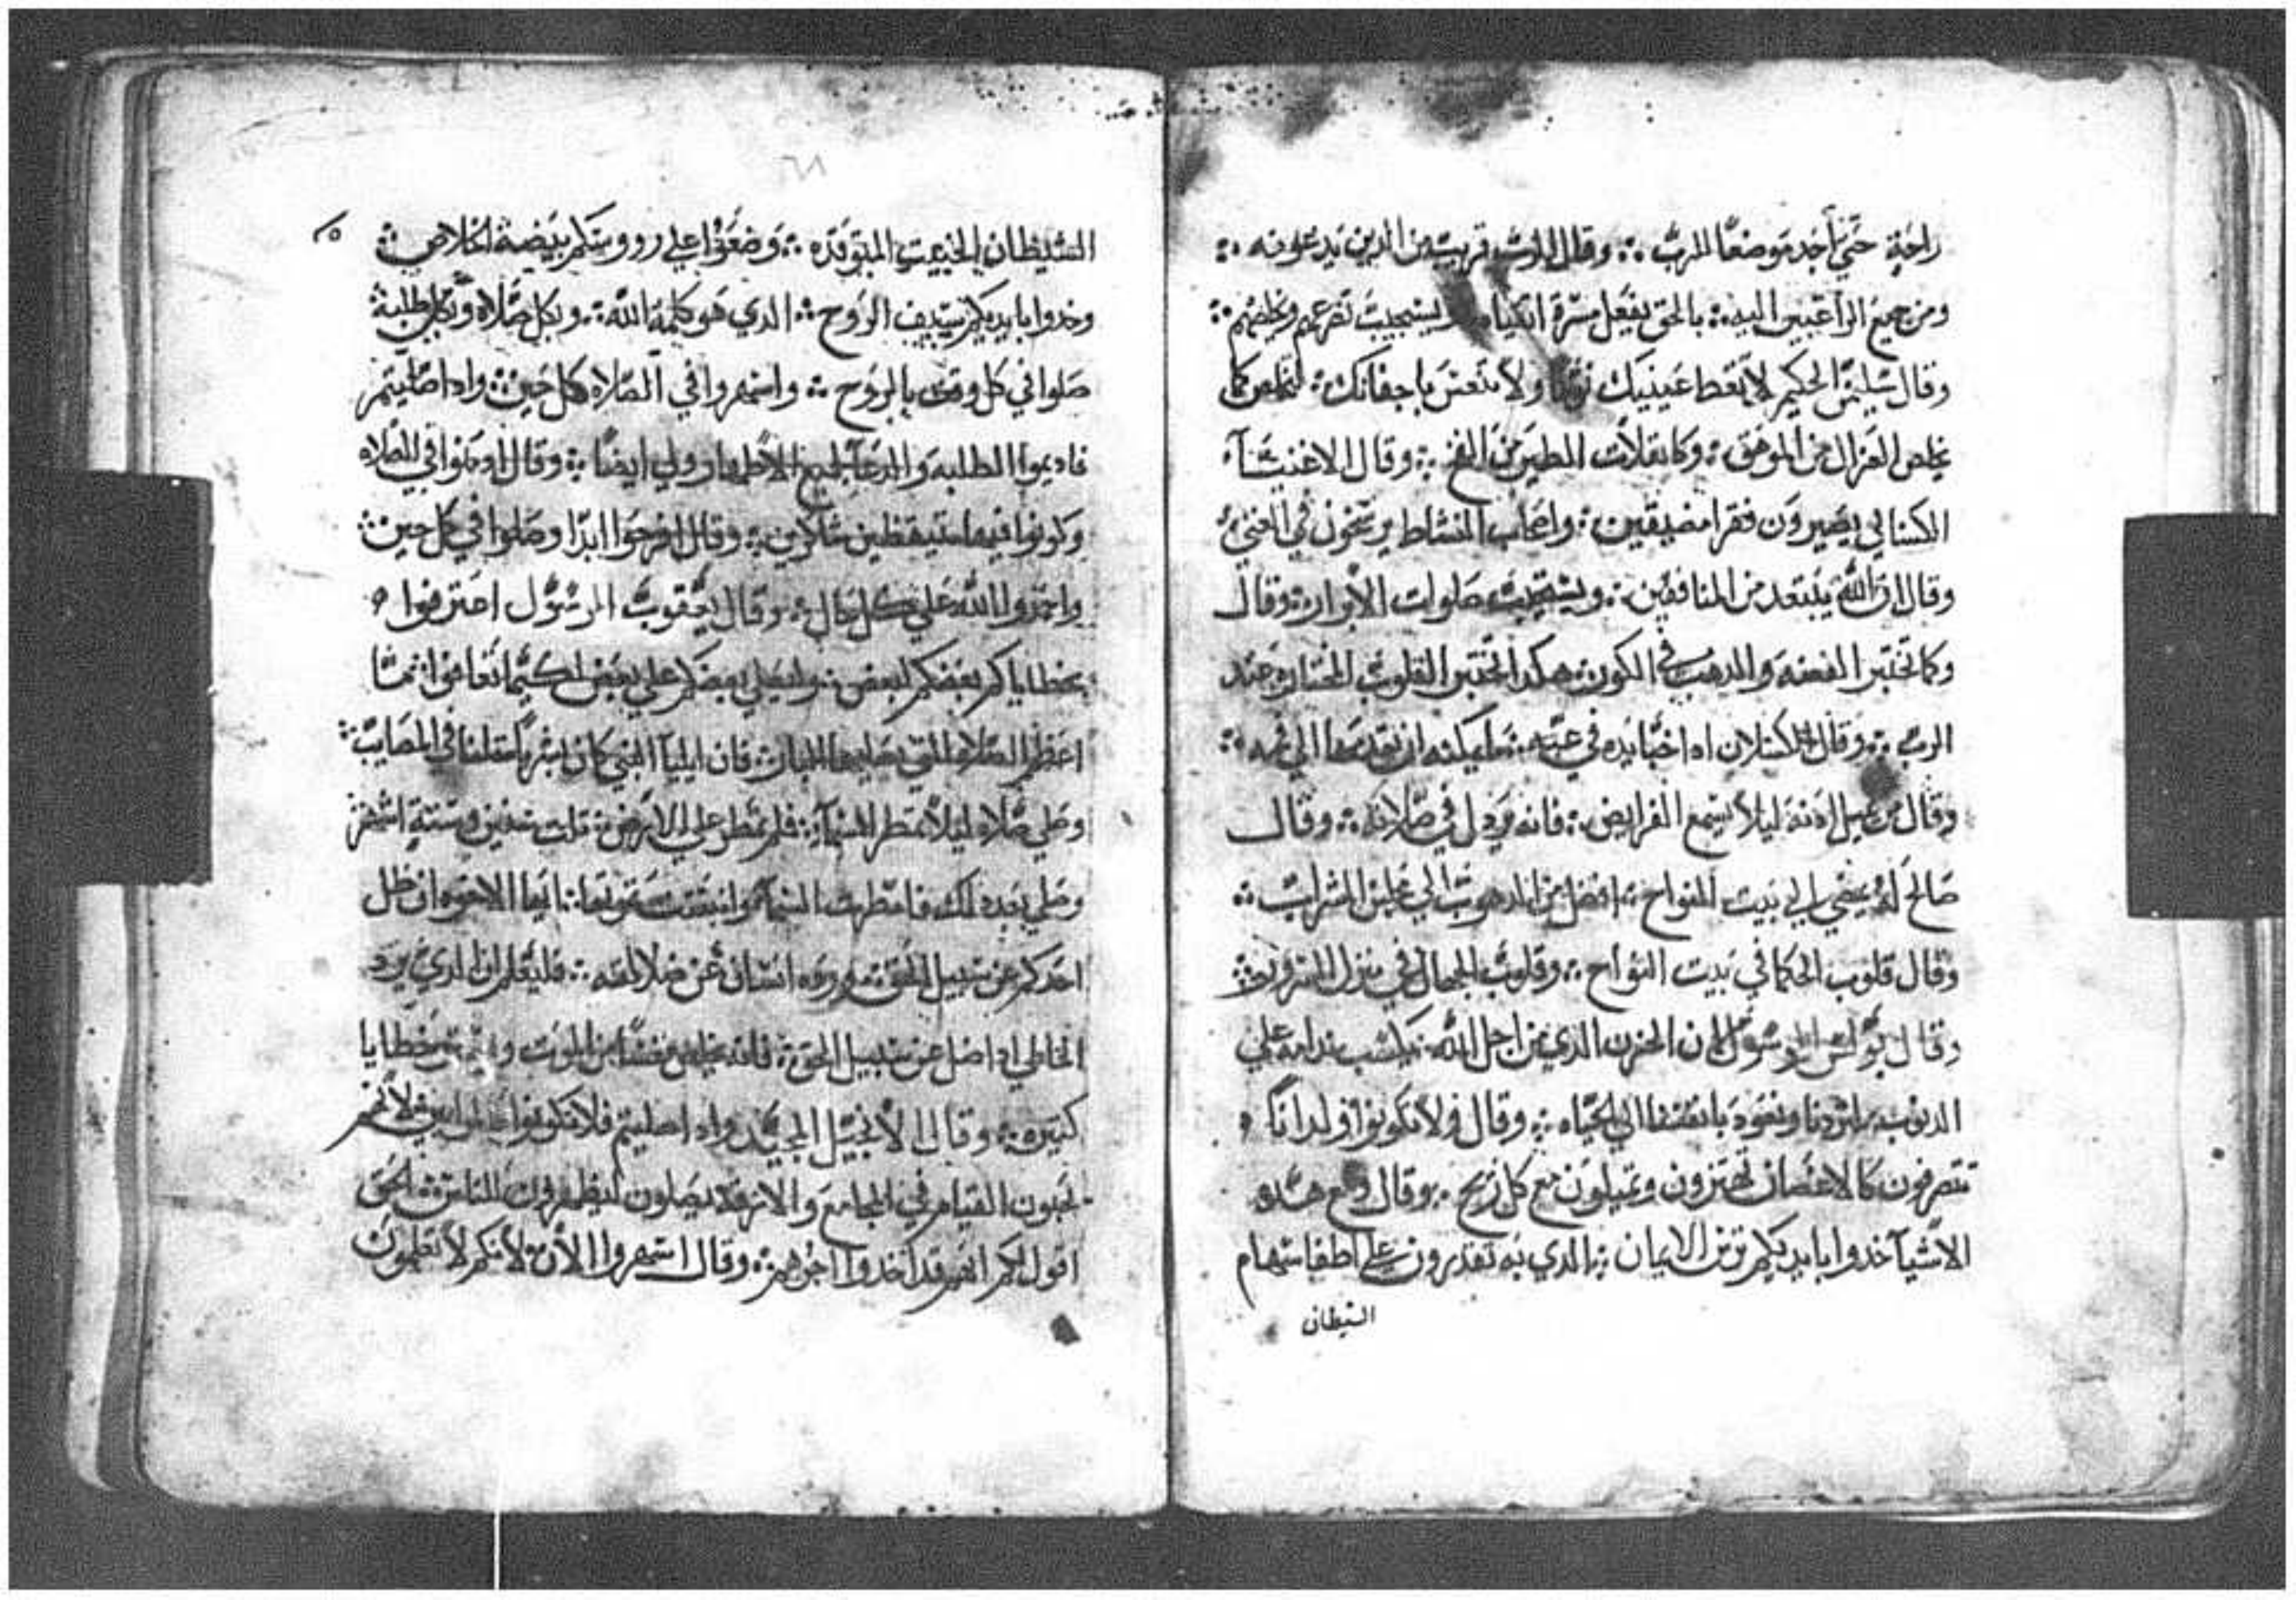 راحة حتي أجد موضعًا للرب ⁘ وقال الرب قريب من الدين يدعونه ⁘
ومن جميع الراغبين اليه ⁘ بالحق يفعل مسرة اتقياه ويستجيب تضرعهم ويخلصهم ⁘
وقال سليمن الحكيم لا تعط عينيك نومًا ولا تنعس باجفانك ⁘ لتخلص كما
يخلص الغزال من الموهق ⁘ وكانفلات الطير من الفخ ⁘ وقال الاغنيآء
الكسالي يصيرون فقرا مضيقين ⁘ واصحاب النشاط يرسخون في الغني ⁘
وقال ان الله يبتعد من المنافقين ⁘ ويستجيب صلوات الأبرار ⁘ وقال
وكما تختبر الفضه والدهب في الكور ⁘ هكدا تختبر القلوب المختاره عند
الرب ⁘ وقال الكسلان اد اخبا يده في عبه ⁘ ما يمكنه ان يقدمها الي فمه ⁘
وقال من يميل ادنه ليلا يسمع الفرايض ⁘ فانه مردل في صلاته ⁘ وقال
صالح له يمضي الي بيت النواح ⁘ افضل من الدهوب الي مجلس الشراب ⁘
وقال قلوب الحكما في بيت النواح ⁘ وقلوب الجهال في منزل السرور ⁘
وقال بولس الرسول ان الحزن الدي من اجل الله يكسب ندامه علي
الدنوب وتعود بانفسنا الي الحياه ⁘ وقال ولا تكونوا ولدانًا
تتصرفون كالاغصان تهتزون وتميلون مع كل ريح ⁘ وقال ومع هده
الأشيآ خدوا بايديكم ترس الايمان ⁘ الدي به تقدرون علي اطفا سهام
الشيطان
٦٨
الشيطان الخبيث المتوقده ⁘ وضعوا علي رووسكم بيضة الخلاص ⁘
وخدوا بايديكم سيف الروح ⁘ الدي هو كلمة الله ⁘ وبكل صلاه وبكل طلبة
صلوا في كل وقت بالروح ⁘ واسهروا في الصلاه كل حين ⁘ وادا صليتم
فاديموا الطلبه والدعا لجميع الأطهار ولي ايضًا ⁘ وقال ادمنوا في الصلاه
وكونوا فيها مستيقظين شاكرين ⁘ وقال افرحوا ابدًا وصلوا في كل حين ⁘
واشكروا الله علي كل حال ⁘ وقال يعقوب الرسول اعترفوا
بخطاياكم بعضكم لبعض ⁘ وليصلي بعضكم علي بعض لكيما تعافوا ⁘ فما
اعظم الصلاه التي يصليها البار ⁘ فان ايليآ النبي كان بشرًا مثلنا في المصايب ⁘
وصلي صلاه ليلا تمطر السمآ ⁘ فلم تمطر علي الارض ⁘ تلت سنين وستة اشهر
وصلي بعد دلك فامطرت السمآ ⁘ وانبتت الارض ثمرتها ⁘ ايها الاخوه ان ضل
احدكم عن سبيل الحق ⁘ ورده انسان عن ضلالته ⁘ فليعلم ان الدي يرد
الخاطي ادا ضل عن سبيل الحق ⁘ فانه يخلص نفسًا من الموت ويستر خطايا
كتيره ⁘ وقال الأنجيل المجيد وادا صليتم فلا تكونوا كالمرايين ⁘ لأنهم
يحبون القيام في المجامع والازقة يصلون ليظهرون للناس ⁘ الحق
اقول لكم انهم قد اخدوا اجرهم ⁘ وقال اسهروا الأن ⁘ لأنكم لأتعلمون